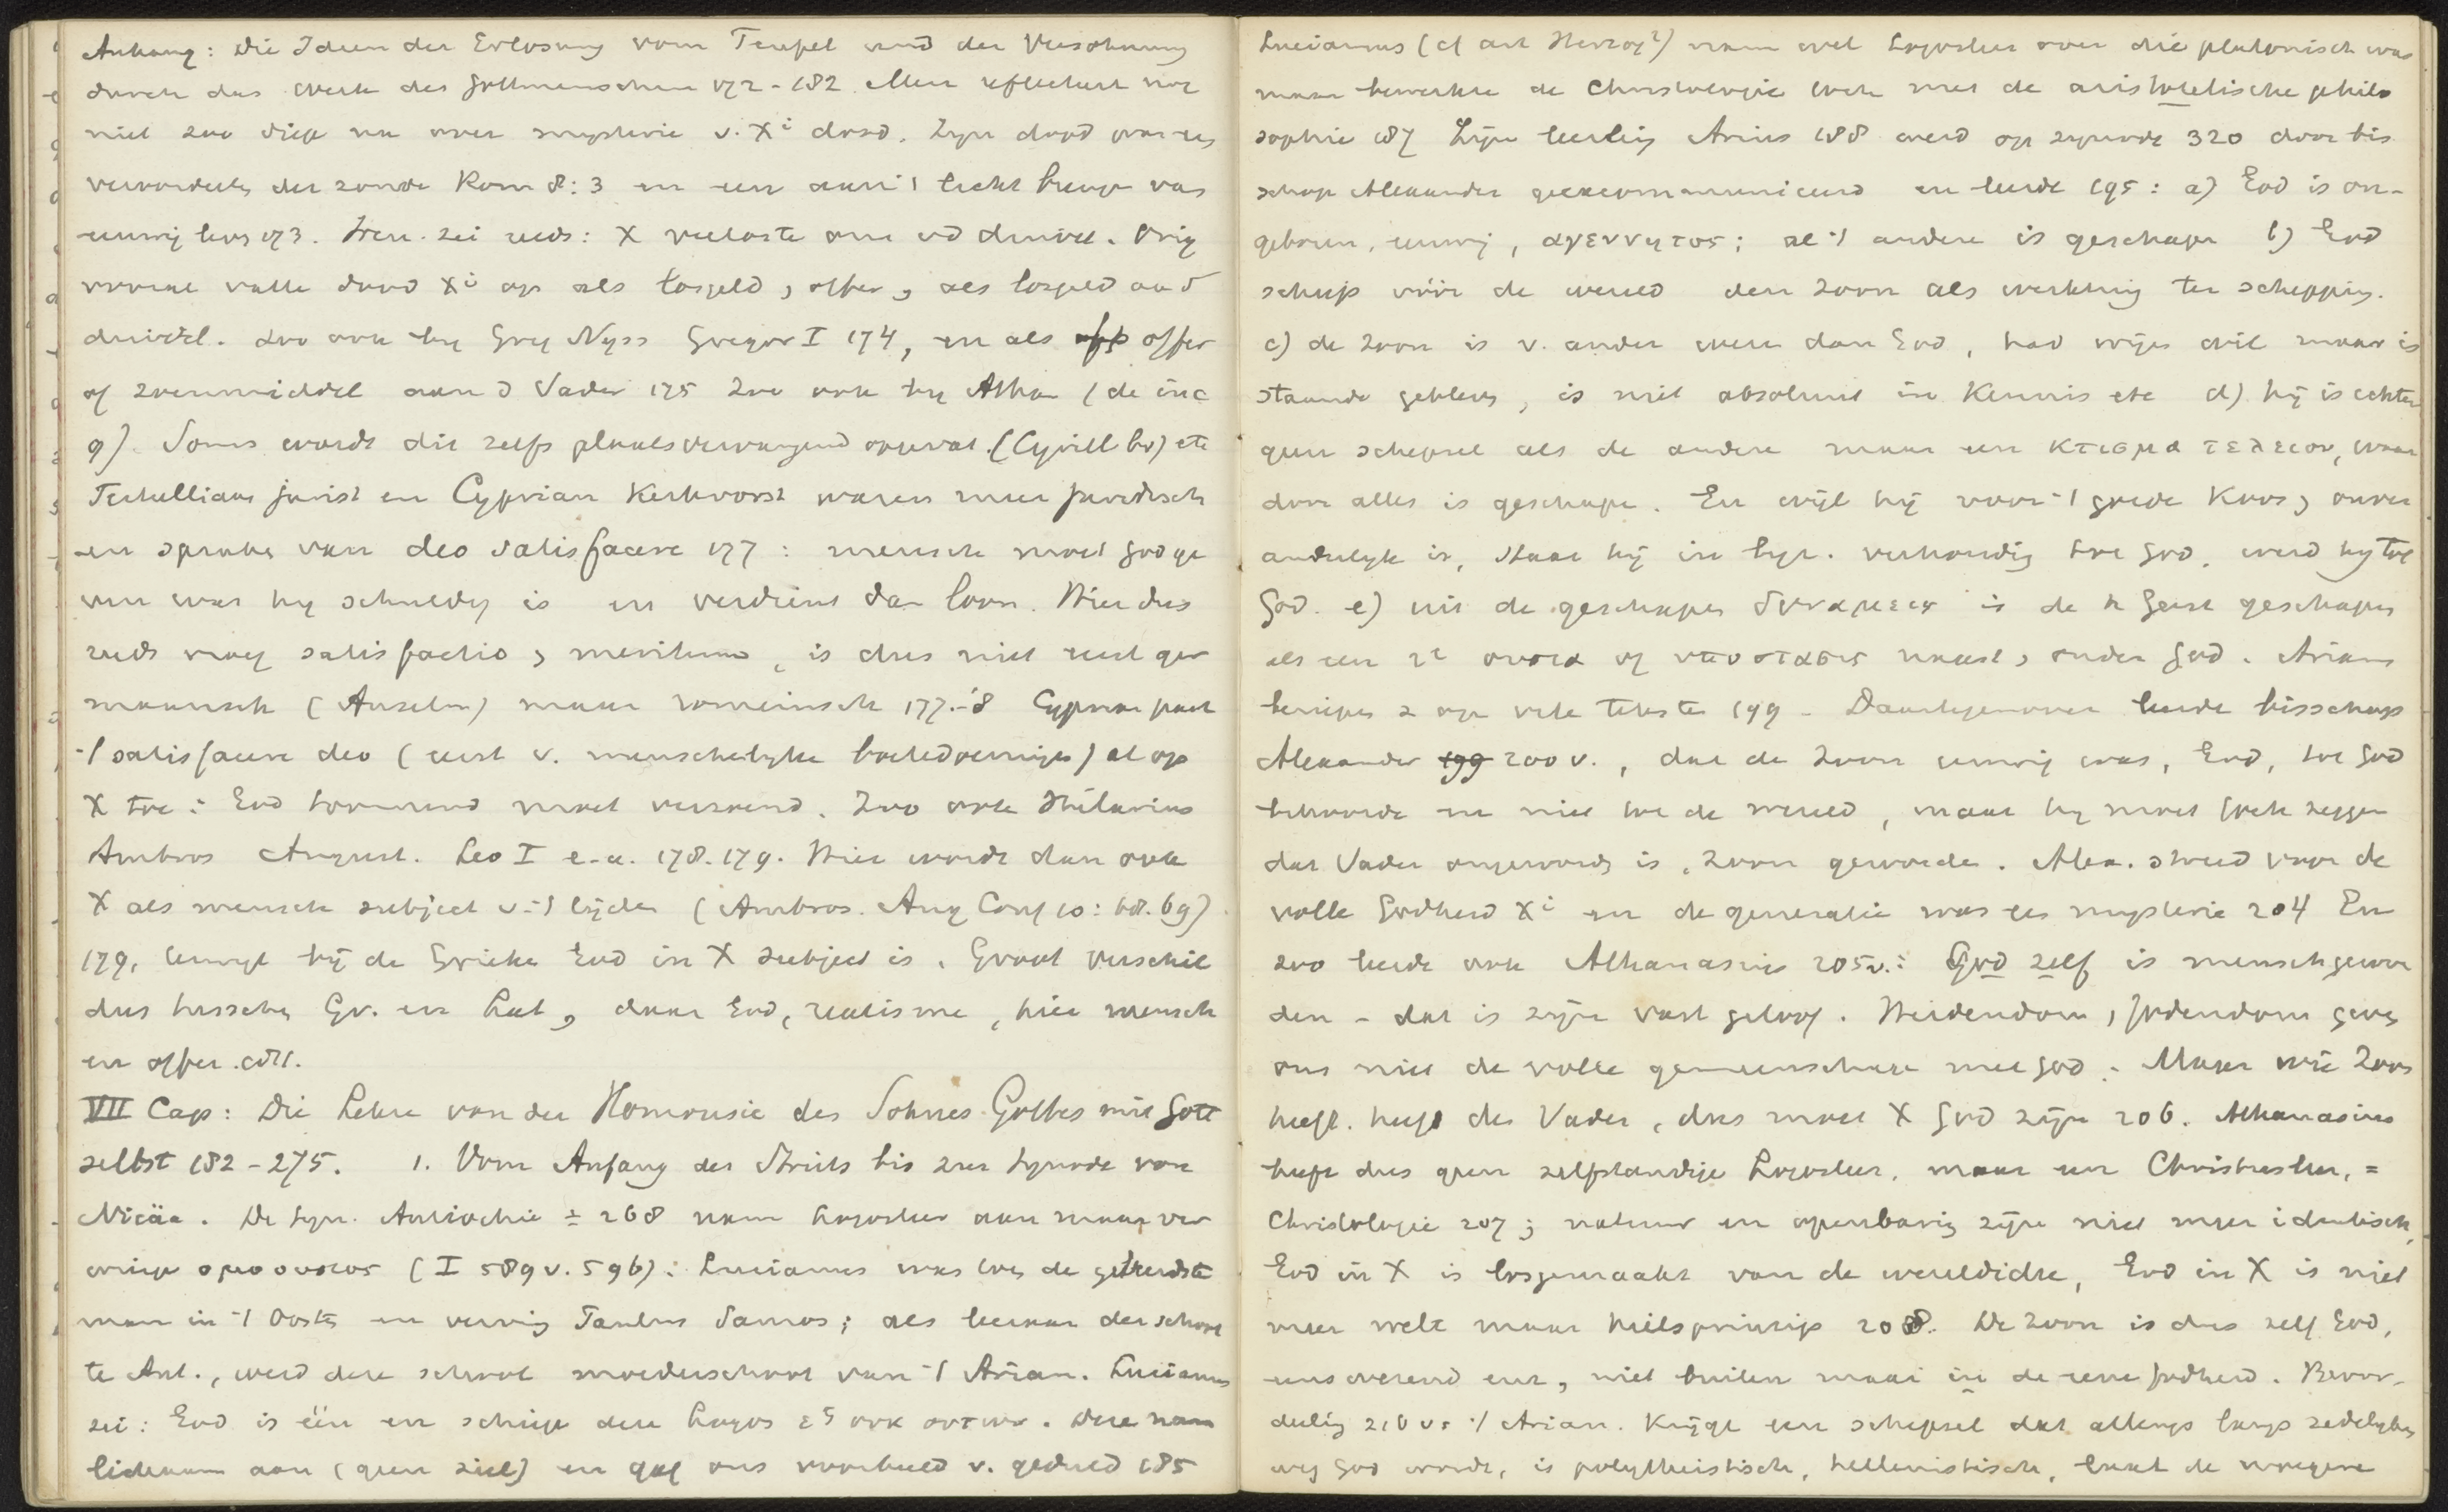 Anhang: Die Ideen der Erlösung vom Teufel und der Versöhnung
durch das Werk des Gottmenschen 172-182. Men reflectert nog
niet zoo diep na over mysterie v. Xi dood. Zijn dood was
veroordeelg der zonde Rom 8:3 en een aan 't licht brenge van
eeuwig leve 173. Iren. zei reeds: X verloste ons v d duivel. Orig
vooral vatte dood Xi op als losgeld, offer, als losgeld aan d
duivel. Zoo ook bij Greg Nyss Gregor I 174, en als offer
of zoenmiddel aan d Vader 175 Zoo ook bij Athan (de inc
9). Soms wordt dit zelfs plaatsvervangend opgevat. (Cyrill bv) etc
Tertullianus jurist en Cyprian Kerkvorst waren meer juridisch
en spraken van deo satisfacere 177: mensch moet God ge
ven wat hij schuldig is en verdient dan loon. Hier dus
reeds vroeg satisfactio, meritum, is dus niet eerst ger
maansch (Anselm) maar romeinsch 177.-8 Cyprian past
't satisfacere deo (eerst v. menschelijke boetedoeninge) al op
X toe: God toornend moet verzoend. Zoo ook Hilarius
Ambros August. Leo I e.a. 178.179. Hier wordt dan ook
X als mensch subject v. 't lijden (Ambros. Aug Conf 10: 68.69)
179, terwijl bij de Grieke God in X subject is. Groot verschil
dus tusschen Gr. en Lat, daar God, realisme, hier mensch
en offer.
VII Cap: Die Lehre von der Homousie des Sohnes Gottes mit Gott
selbst 182-275. 1. Vom Anfang des Streits bis zur Synode von
Nicäa. De Syn. Antiochie ± 268 nam Logosleer aan maar ver
wierp ομοουσιος (I 589 v. 596): Lucianus was toen de geleerdste
man in 't Ooste en vervig Paulus Samos; als leeraar der school
te Ant., werd deze school moederschool van 't Arian. Lucianus
zei: God is één en schiep deze Logos εξ ουκ οντων. Deze nam
lichaam aan (geen ziel) en gaf ons voorbeeld v. geduld 185
Lucianus (cf art Herzog²) nam wel Logosleer over die platonisch was
maar bewerkte de Christologie ook met de aristotelische philo
sophie 187 Zijn leerling Arius 188 werd op synode 320 door bis
schop Alexander geexcommuniceerd en leerde 195: a) God is on-
geboren, eeuwig, αγεννητος; al 't andere is geschape b) God
schiep vóór de wereld den Zoon als werktuig ter schepping.
c) de Zoon is v. ander wezen dan God, had vrije wil maar is
staande gebleve, is niet absoluut in Kennis etc d) hij is echter
geen schepsel als de andere maar een κτισμα τελειον, waar
door alles is geschape. En wijl hij voor 't goede koos, onver
anderlijk is, staat hij in bijz. verhouding tot God, werd hij tot
God. e) uit de geschape δυναμεις is de h Geest geschape
als een 2e ουσια of υποστασις naast, onder God. Arians
beriepen z op vele teksten 199 - Daartegenover leerde bisschop
Alexander 199 200 v., dat de Zoon eeuwig was, God, tot God
behoorde en niet tot de wereld, maar hij moet toch zegge
dat Vader ongeworden is, Zoon geworden. Alex. streed voor de
volle Godheid Xi en de generatie was mysterie 204 En
zoo leerde ook Athanasius 205v.: God zelf is menschgewor
den - dat is zijn vast geloof. Heidendom, Jodendom geve
ons niet de volle gemeenschap met God. Maar wie Zoon
heeft, heeft den Vader, dus moet X God zijn 206. Athanasius
heeft dus geen zelfstandige Logosleer, maar een Christusleer, =
Christologie 207; natuur en openbaring zijn niet meer identisch,
God in X is losgemaakt van de wereldidee, God in X is niet
meer welt maar heilsprinzip 208. De Zoon is dus zelf God,
eenswezend, niet buiten maar in de eene Godheid. Beoor-
deelig 210 v. 't Arian. Krijgt een schepsel dat allengs langs zedelijke
weg God wordt, is polytheistisch, hellenistisch, de